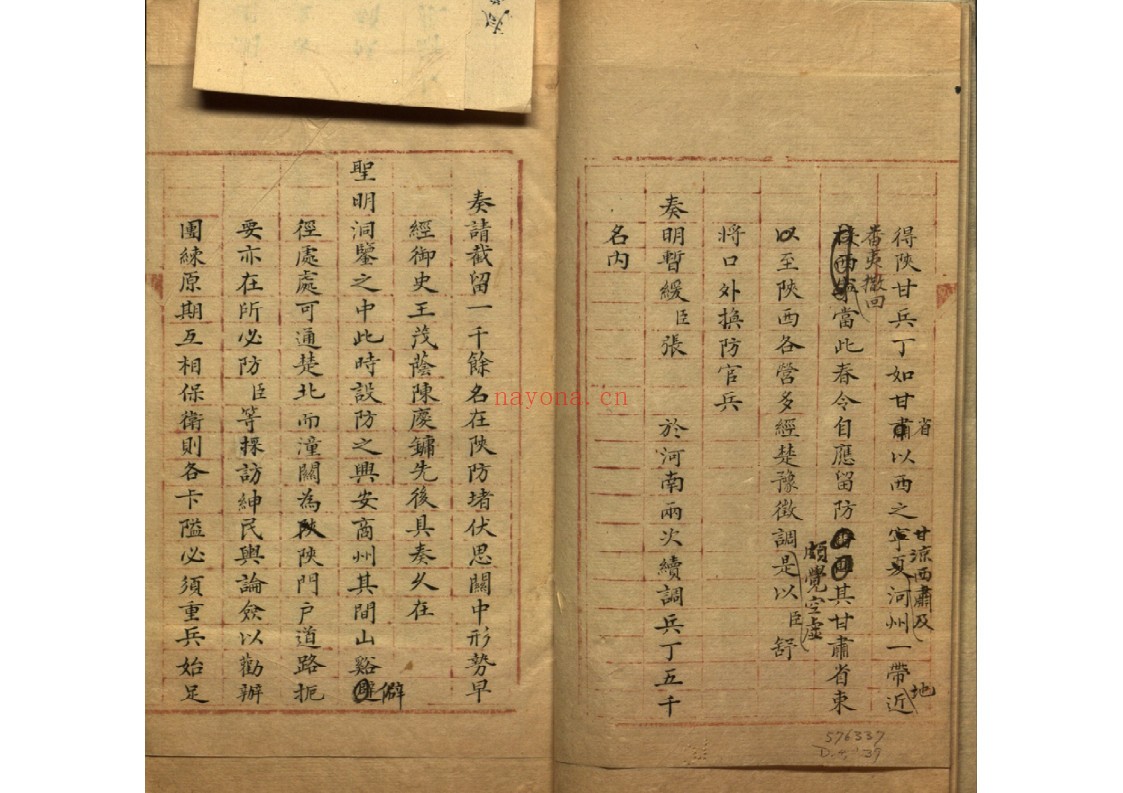 得陝甘兵丁如甘肅省以西之寧夏河州甘涼西肅及一帶近地
番夷撤回
當此春令自應留防其甘肅省東
以至陝西各營多經楚豫徵調是以臣舒
頗覺空虛
將口外換防官兵
奏明暫緩臣張　於河南兩次續調兵丁五千
名內
奏請截留一千餘名在陝防堵伏思關中形勢早
經御史王茂蔭陳慶鏞先後具奏久在
聖明洞鑒之中此時設防之興安商州其間山谿僻
徑處處可通楚北而潼關為陝陝門戶道路扼
要亦在所必防臣等採訪紳民輿論僉以勸辦
團練原期互相保衛則各卡隘必須重兵始足
576337
nayona.cn